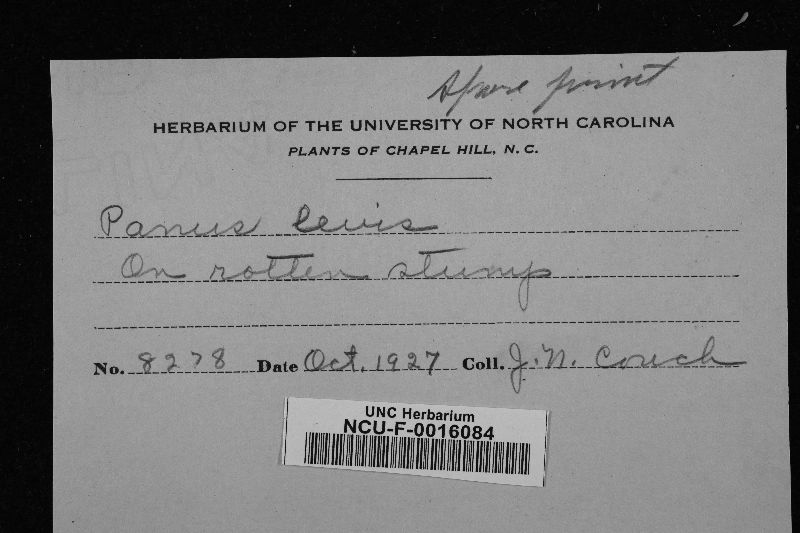 Spore print
HERBARIUM OF THE UNIVERSITY OF NORTH CAROLINA
PLANTS OF CHAPEL HILL, N. C.
Panus levis
On rotten stump
No. 8278 Date Oct. 1927 Coll. J. N. Couch
UNC Herbarium
NCU-F-0016084